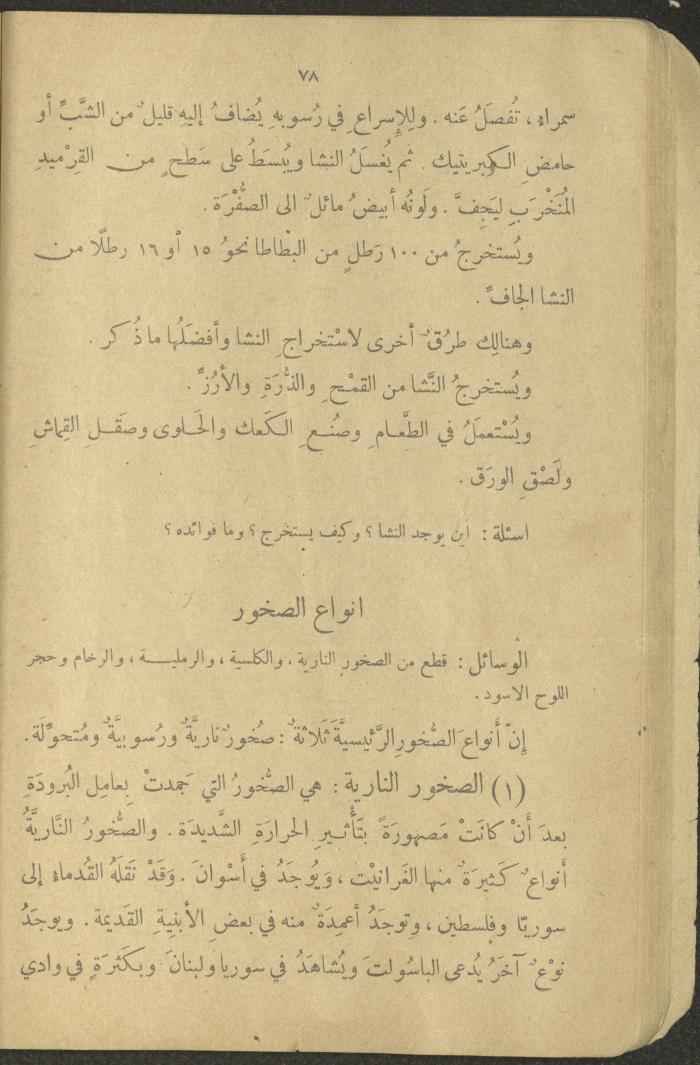 ٧٨
سمراء، تُفصَلُ عَنه. وللإسراعِ في رُسوبهِ يُضافُ إليهِ قليلٌ من الشَّبِّ أو
حامضِ الكبريتيك. ثم يُغسَلُ النشا ويُبسَطُ على سَطحٍ من القِرْميدِ
المُنَخْرَبِ ليَجِفَّ. ولَونُه أبيضُ مائلٌ الى الصُّفْرَة.
ويُستخرجُ من ١٠٠ رَطلٍ من البطاطا نحوُ ١٥ أو ١٦ رطلًا من
النشا الجافِّ.
وهنالِك طرُقٌ أخرى لاسْتخراجِ النشا وأفضَلُها ما ذُكر.
ويُستخرجُ النَّشا من القمْحِ والذُّرَةِ والأرُزِّ.
ويُسْتعملُ في الطَّعامِ وصنُعِ الكَعك والحَلوى وصَقلِ القِماشِ
ولَصْقِ الورَق.
اسئلة: اين يوجد النشا؟ وكيف يستخرج؟ وما فوائده؟
انواع الصخور
الوسائل: قطع من الصخور النارية، والكلسية، والرملية، والرخام وحجر
اللوح الاسود.
إِنّ أَنواعَ الصُّخورِ الرَّئيسيَّةَ ثَلاثةٌ: صُخورٌ ناريَّةٌ ورُسوبيَّةٌ ومُتحوِّلَة.
(١) الصخور النارية: هي الصُّخورُ التي جَمدتْ بِعامِل البُرودَةِ
بعدَ أَنْ كانَتْ مَصهورَةً بتَأْثيرِ الحرارَةِ الشَّديدَة. والصُّخورُ النَّاريَّةُ
أَنواعٌ كَثيرَةٌ منها الغَرانيْت، وَيُوجَدُ في أَسْوانَ. وَقَدْ نقلَهُ القُدماءُ إلى
سوريّا وفِلسطين، وتوجَدُ أعمِدَةٌ منه في بعضِ الأبنيةِ القَديمة. ويوجَدُ
نوْعٌ آخَرُ يُدعى الباسُولتَ ويُشاهَدُ في سوريا ولبنانَ وبكَثرَةٍ في وادي